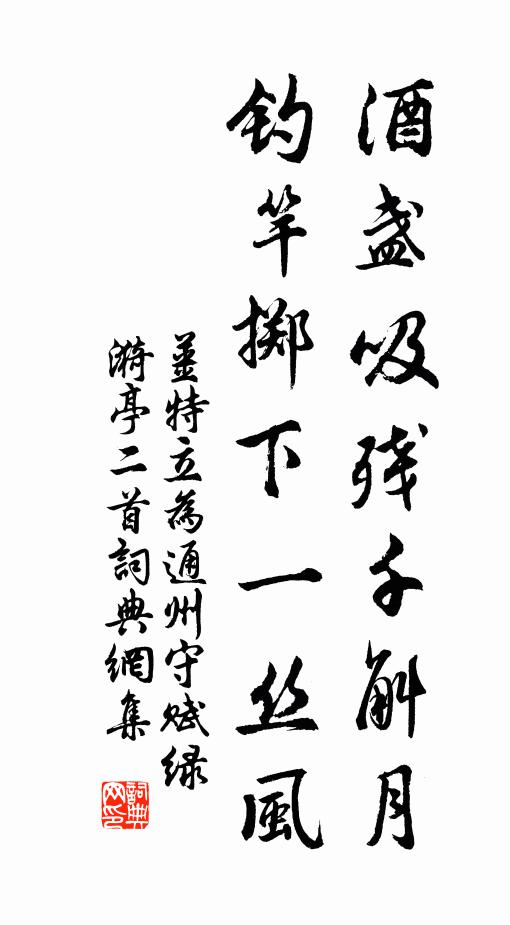 酒盏吸残千斛月
钓竿掷下一丝风
姜特立為通州守赋绿
漪亭二首詞典網集
詞典网印